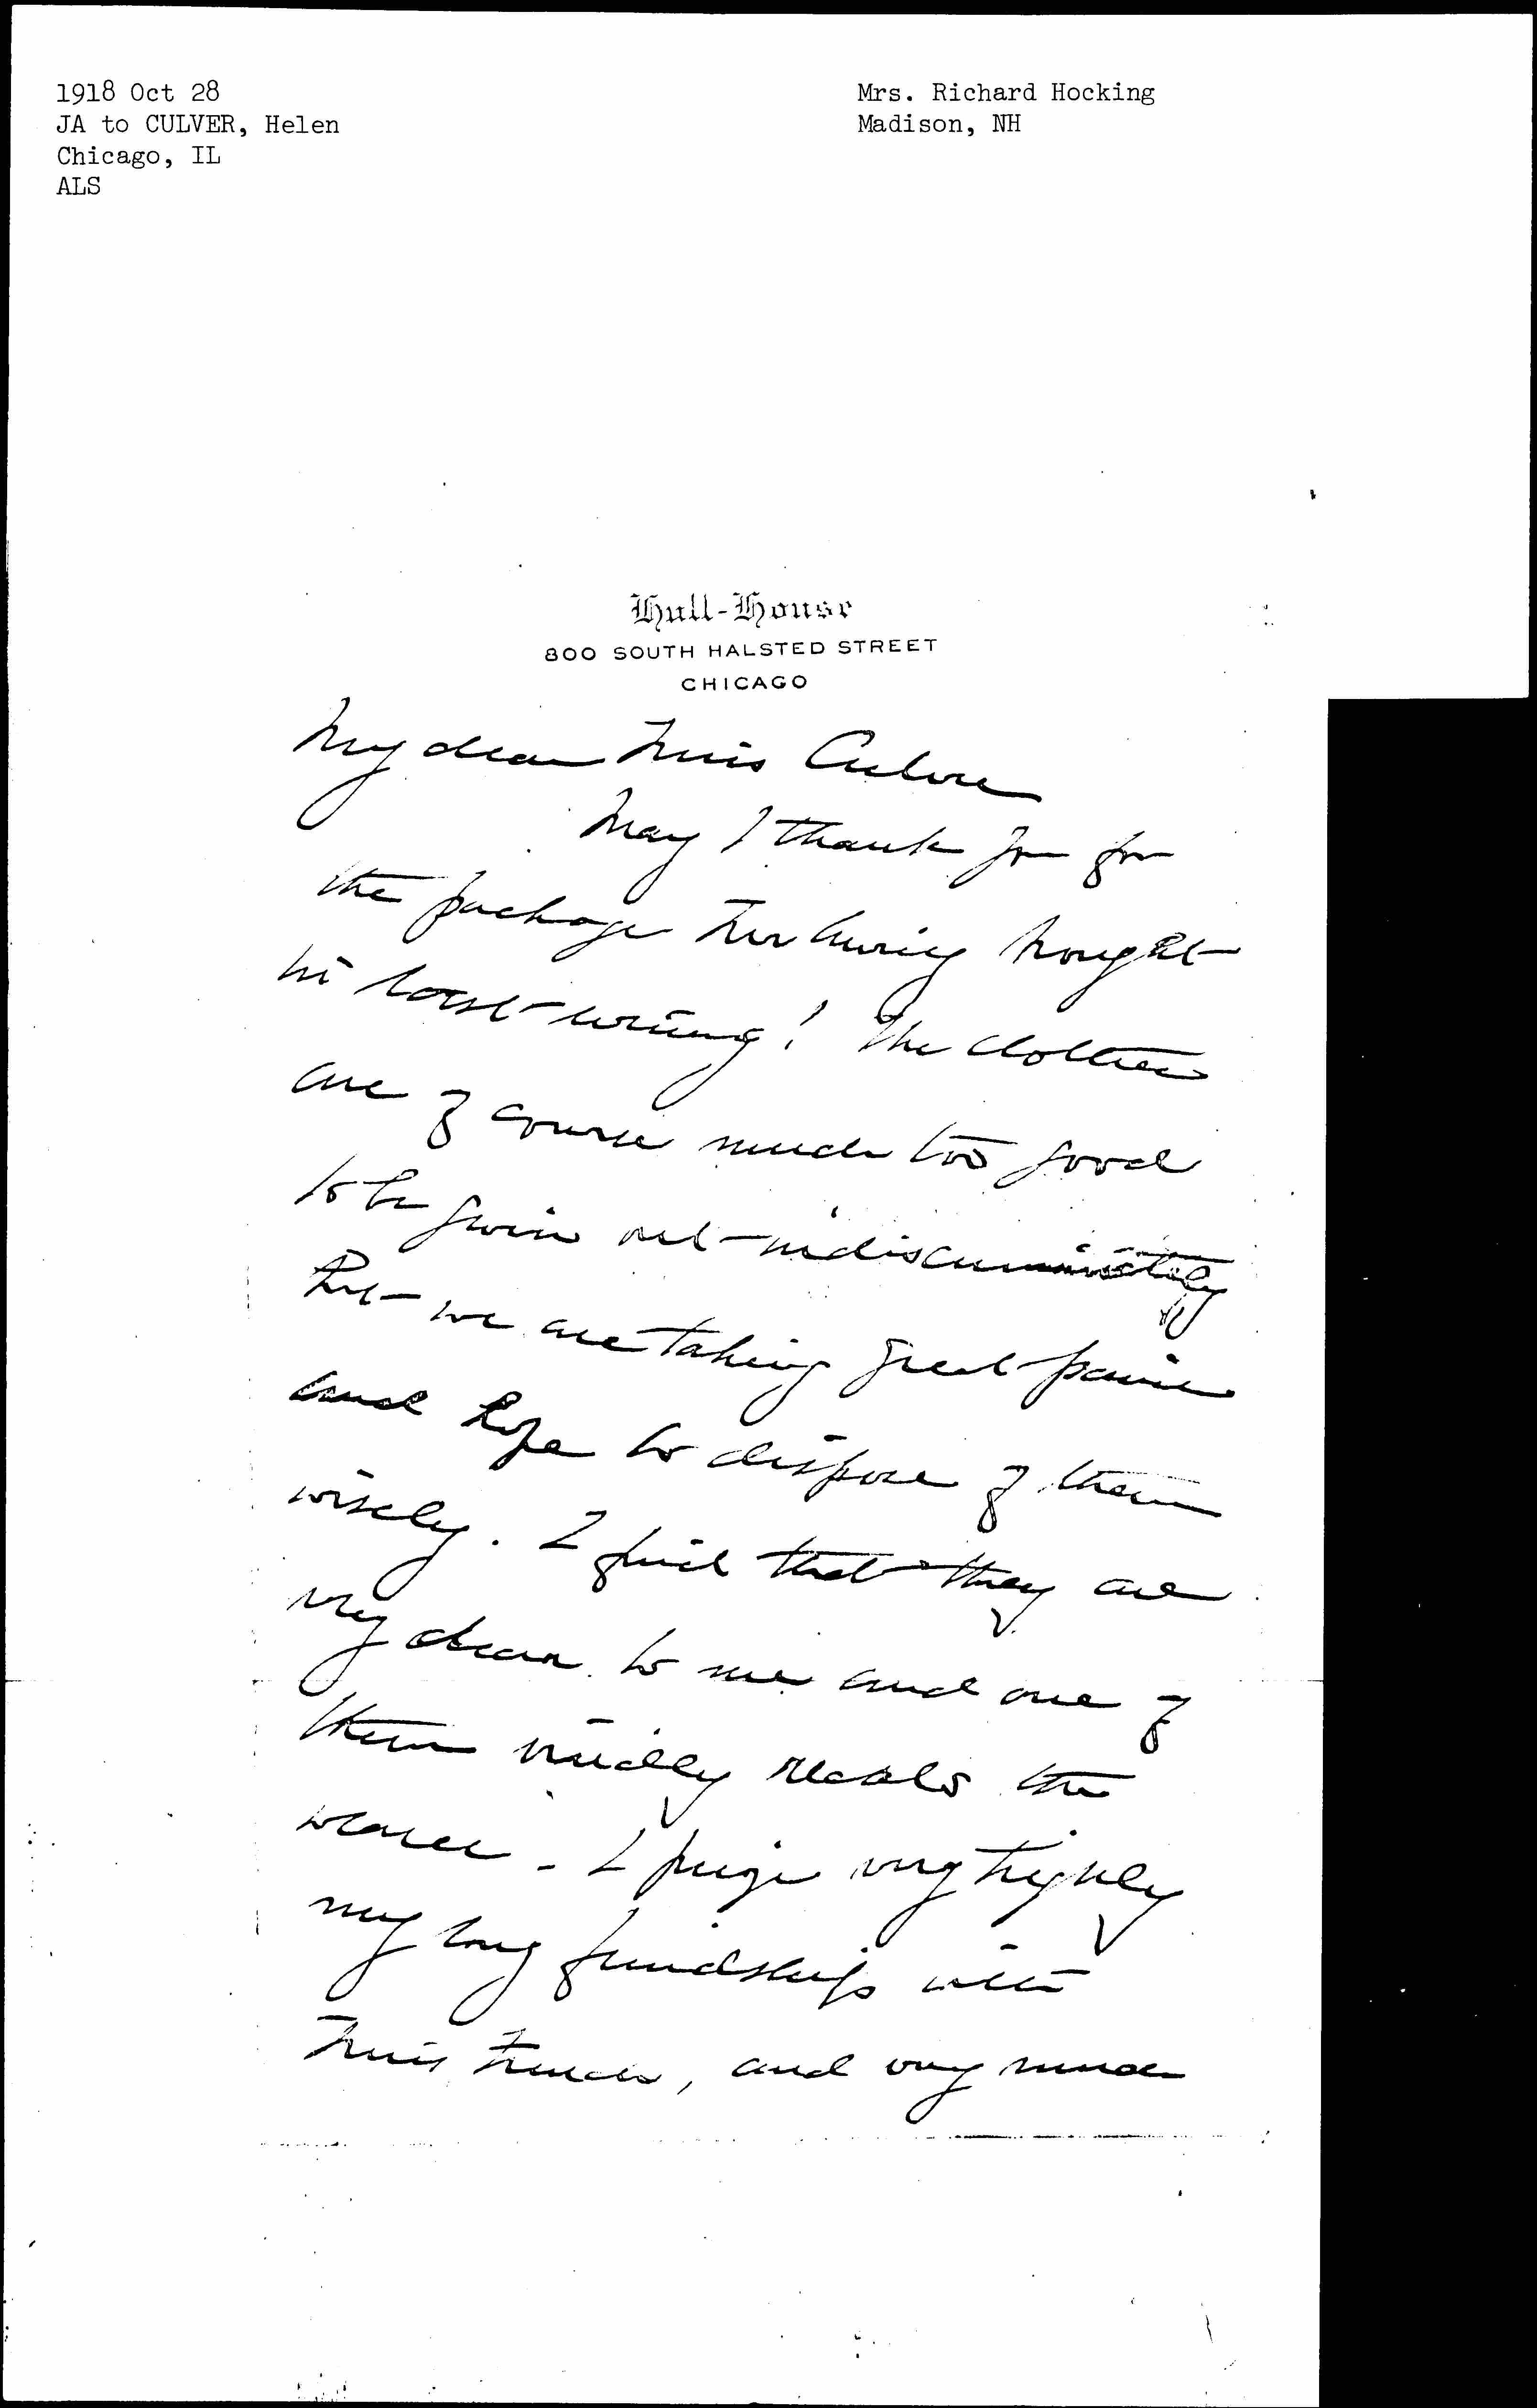 1918 Oct 28
JA to CULVER, Helen
Chicago, IL
ALS
Mrs. Richard Hocking
Madison, NH
Hull-House
800 SOUTH HALSTED STREET
CHICAGO
My dear Miss Culver
May I thank you for
the package brought
in
! The clothes
are of course much too good
to be given out indiscriminately
but we are taking great pains
and hope to dispose of them
wisely. I find that they are
very dear to me and one of
them vividly recalls the
wearer - I prize very highly
my long friendship with
Miss, and very much